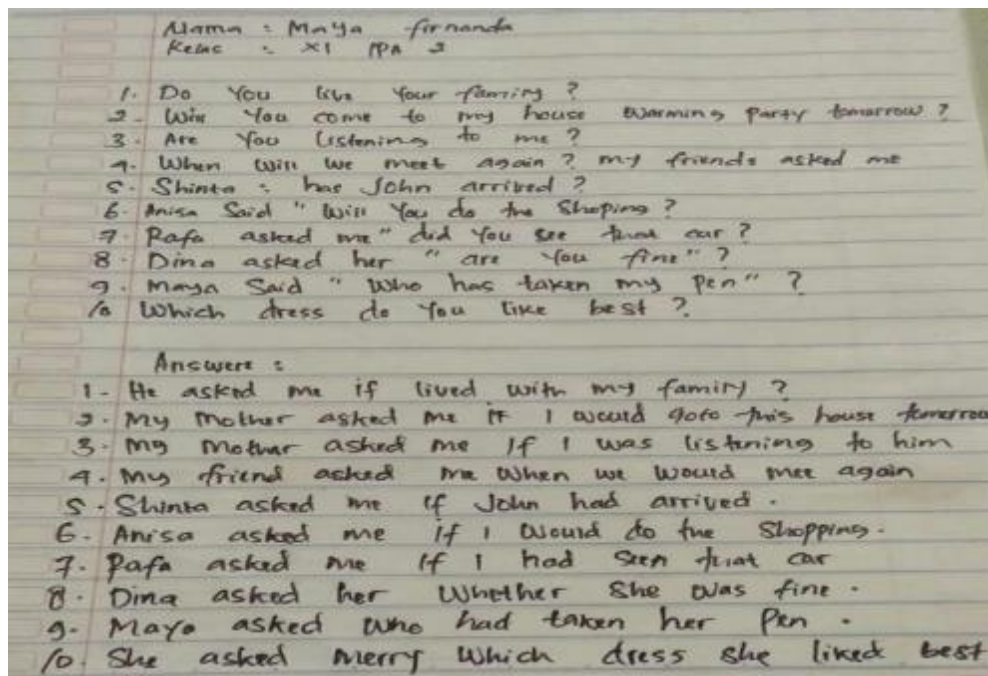 Nama : Maya firnanda
Kelas : XI IPA 2
1. Do You live Your family ?
2. Will You come to my house warming Party tomorrow ?
3. Are You Listening to me ?
4. When will we meet again ? my friends asked me
5. Shinta : has John arrived ?
6. Anisa Said " Will You do the Shoping ?
7. Rafa asked me " did You see that car ?
8. Dina asked her " are You fine " ?
9. Maya Said " Who has taken my Pen " ?
10 Which dress do You like best ?
Answers :
1 - He asked me if lived with my family ?
2. My Mother asked me if I would goto this house tomorrow
3. My Mother asked me If I was listening to him
4. My friend asked me When we Would mee again
5. Shinta asked me if John had arrived .
6. Anisa asked me if I Would do the Shopping .
7. Rafa asked me If I had Seen that car
8. Dina asked her Whether She was fine .
9. Maya asked who had taken her Pen .
10. She asked Merry Which dress she liked best